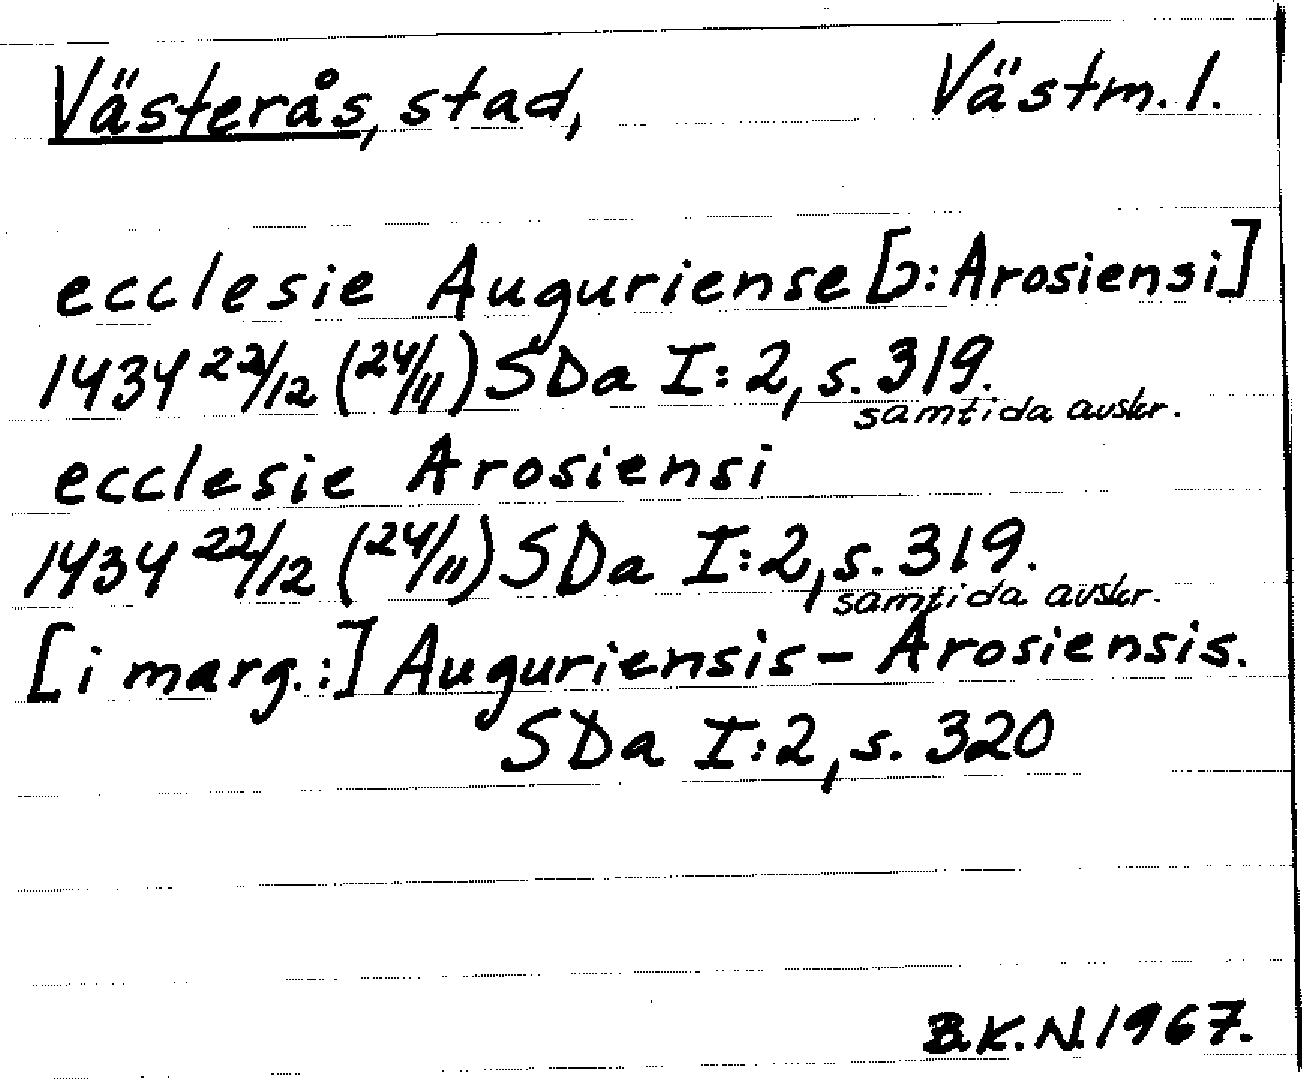 Västerås, stad, Västm. l.
ecclesie Auguriense [ɔ: Arosiensi]
1434 22/12 (24/11) SDa I:2, s. 319.
samtida avskr.
ecclesie Arosiensi
1434 22/12 (24/11) SDa I:2, s. 319.
samtida avskr.
[i marg.:] Auguriensis - Arosiensis.
SDa I:2, s. 320
B.K.N. 1967.